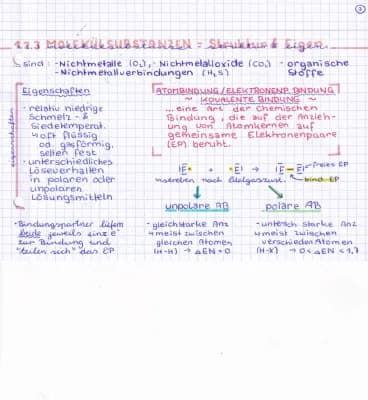 3
12.3 MOLEKÜLSUBSTANZEN - Struktur & Eigen.
sind: - Nichtmetalle (O₂), - Nichtmetalloxide (CO₂) - organische
- Nichtmetallverbindungen (H₂S) Stoffe
eigenschaften
Eigenschaften
- relativ niedrige
Schmelz- &
Siedetemperat.
↳ oft flüssig
od. gasförmig,
selten fest
- unterschiedliches
Löseverhalten
in polaren oder
unpolaren
Lösungsmitteln
ATOMBINDUNG/ELEKTRONENP. BINDUNG
~ KOVALENTE BINDUNG ~
... eine Art der chemischen
Bindung, die auf der Anzieh-
ung von Atomkernen auf
gemeinsame Elektronenpaare
(EP) beruht.
|E• + •E| → |E–E| freies EP
bind. EP
anstreben nach Edelgaszust.
unpolare AB
polare AB
- Bindungspartner liefern
beide jeweils einz. e⁻
zur Bindung und
"teilen sich" das EP
- gleichstarke Anz
↳ meist zwischen
gleichen Atomen
(H-H) → ΔEN = 0
- untersch. starke Anz
↳ meist zwischen
verschieden Atomen
(H-X) → 0 < ΔEN < 1,7